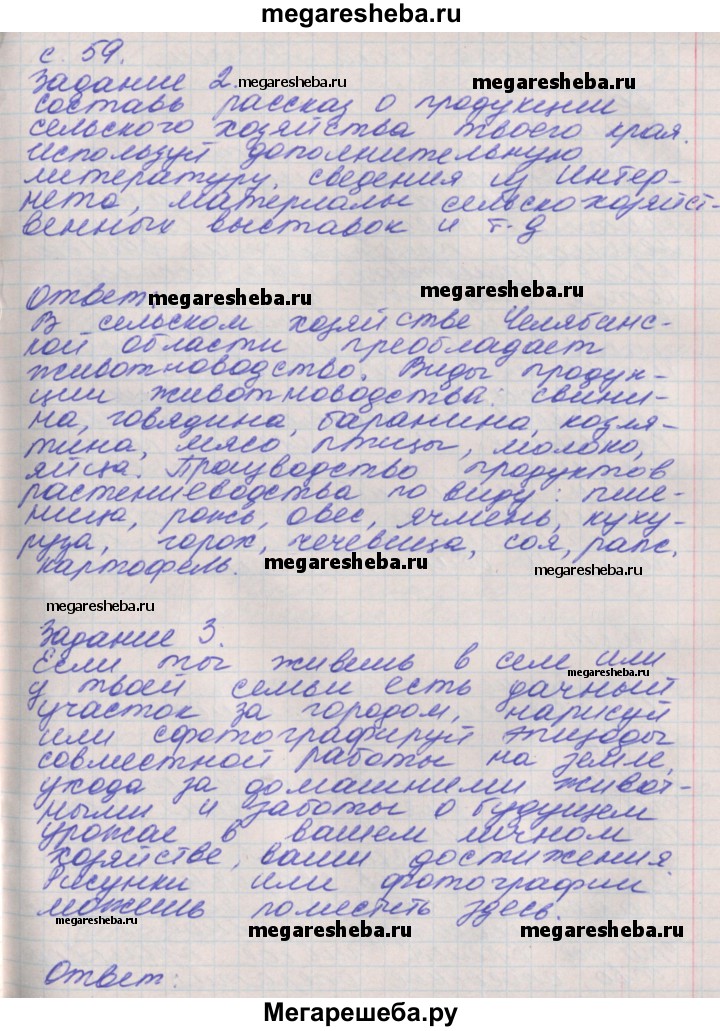 megaresheba.ru
с. 59.
Задание 2. megaresheba.ru megaresheba.ru
Составь рассказ о продукции
сельского хозяйства твоего края.
Используй дополнительную
литературу, сведения из Интер-
нета, материалы сельскохозяйст-
венных выставок и т.д
Ответ: megaresheba.ru megaresheba.ru
В сельском хозяйстве Челябинс-
кой области преобладает
животноводство. Виды продук-
ции животноводства: свини-
на, говядина, баранина, козля-
тина, мясо птицы, молоко,
яйца. Производство продуктов
растениеводства по виду: пше-
ница, рожь, овес, ячмень, куку-
руза, горох, чечевица, соя, рапс,
картофель. megaresheba.ru megaresheba.ru
megaresheba.ru
Задание 3.
Если ты живешь в селе или
megaresheba.ru
у твоей семьи есть дачный
участок за городом, нарисуй
или сфотографируй эпизоды
совместной работы на земле,
ухода за домашними живот-
ными и заботы о будущем
урожае в вашем личном
хозяйстве, ваши достижения.
Рисунки или фотографии
можешь поместить здесь.
megaresheba.ru megaresheba.ru megaresheba.ru
Ответ:
Мегарешеба.ру